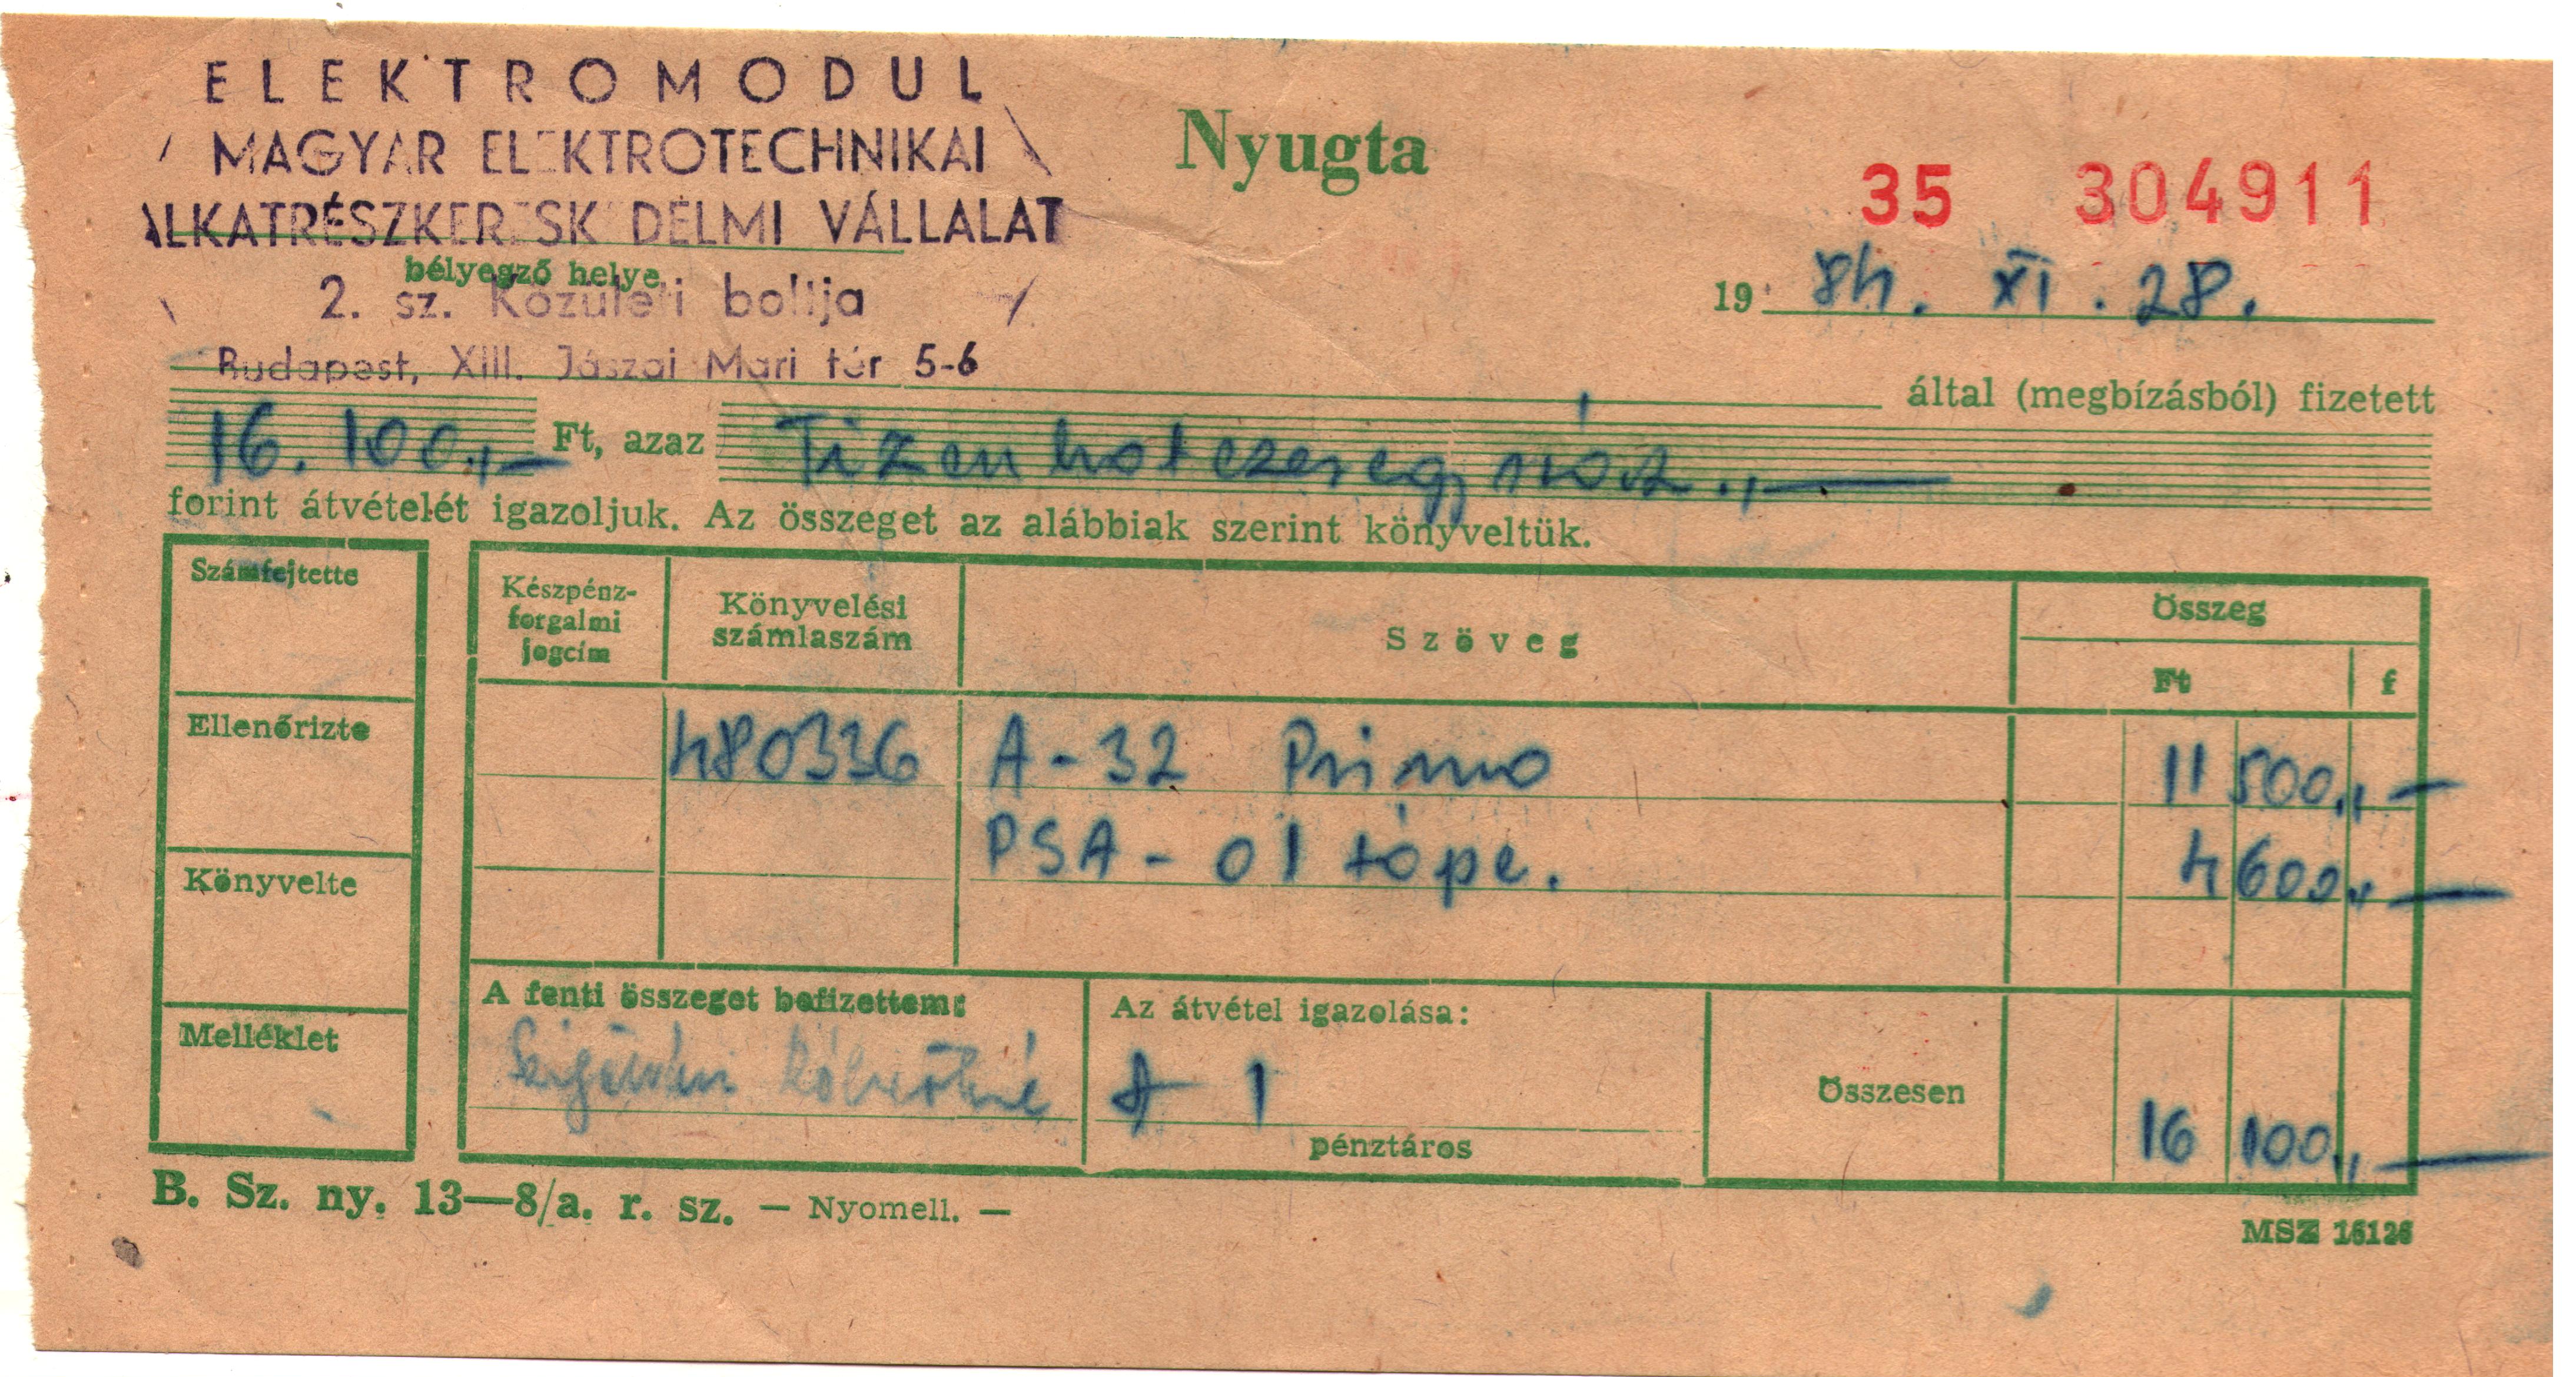 ELEKTROMODUL
MAGYAR ELEKTROTECHNIKAI
ALKATRÉSZKERESKEDELMI VÁLLALAT
bélyegző helye
2. sz. Közületi boltja
Budapest, XIII. Jászai Mari tér 5-6
Nyugta
35 304911
19 84. XI. 28.
által (megbízásból) fizetett
16.100.,- Ft, azaz Tizenhatezeregyszáz.,-
forint átvételét igazoljuk. Az összeget az alábbiak szerint könyveltük.
Számfejtette
Ellenőrizte
Könyvelte
Melléklet
Készpénz-
forgalmi
jogcím
Könyvelési
számlaszám
Szöveg
Összeg
Ft f
480336 A-32 Primo 11 500.,-
PSA-01 tápe. 4 600.,-
A fenti összeget befizettem:
Az átvétel igazolása:
pénztáros
Összesen 16 100.,-
B. Sz. ny. 13—8/a. r. sz. — Nyomell. —
MSZ 16126